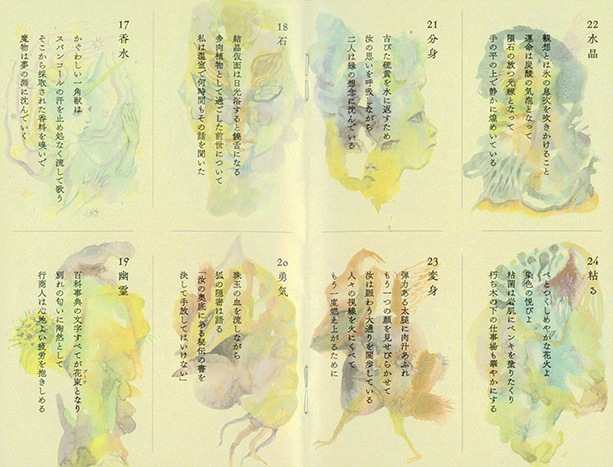 17
香水
かぐわしい一角獣は
スパンコールの汗を止め処なく流して歌う
そこから採取された香料を嗅いで
魔物は夢の淵に沈んでいく
18
石
結晶仮面は日光浴すると饒舌になる
多肉植物として過ごした前世について
私は温室で何時間もその話を聞いた
19
幽霊
百科事典の文字すべてが花束となり
ブーケ
別れの匂いに陶然として
行商人は心地よい疲労を抱きしめる
20
勇気
珠玉の血を流しながら
狐の隠密は語る
「汝の奥底にある秘伝の書を
決して手放してはいけない」
21
分身
古びた硫黄を水に返すため
汝の思いを呼吸しながら
二人は緑の想念に沈んでいる
22
水晶
観想とは氷の息吹を吹きかけること
運命は炭酸の気泡となって
隕石の放つ光線となって
手の平の上で静かに煌めいている
23
変身
弾力ある太腿に肉汁あふれ
もう一つの顔を見せびらかせて
汝は賑わう大通りを闊歩している
人々の視線を火にくべて
もう一度燃え上がるために
24
粘る
べとつくしめやかな花火よ
染色の悦びよ
粘菌は岩肌にペンキを塗りたくり
朽ち木の下の仕事場も華やかにする